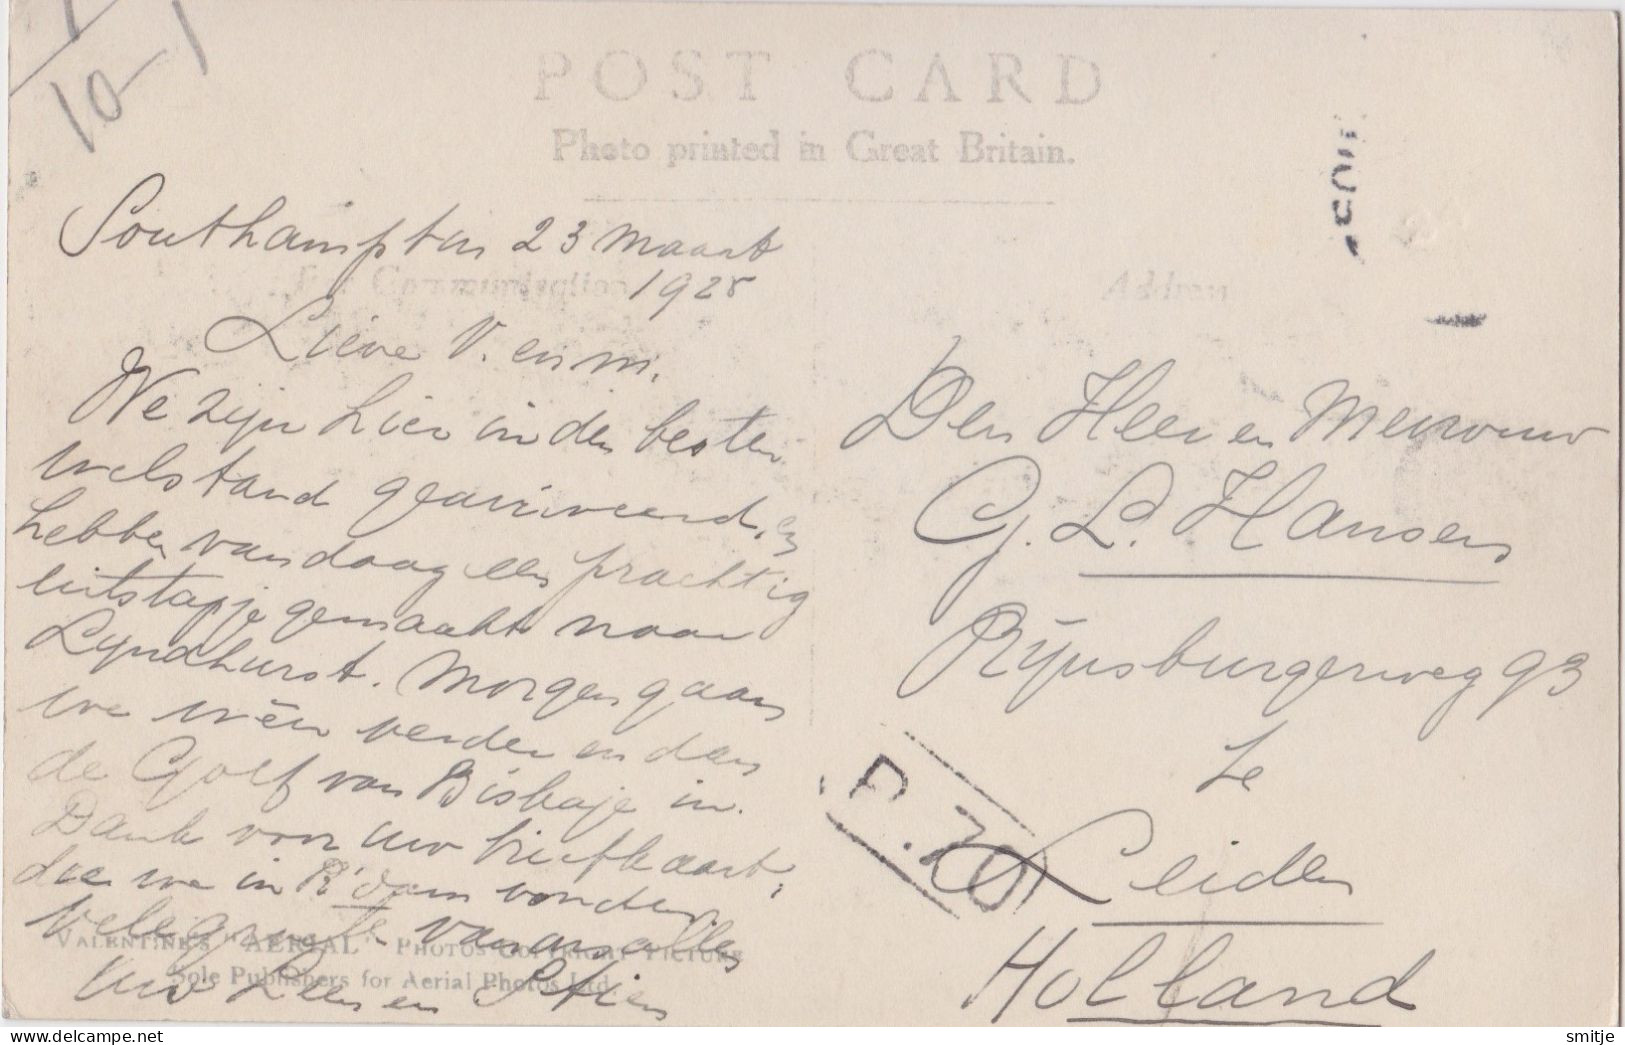 10-
POST CARD
Photo printed in Great Britain.
For Communication
Address
Southampton 23 Maart
1928
Lieve V. en m.
We zijn hier in den besten
welstand gearriveerd, en
hebben vandaag een prachtig
uitstapje gemaakt naar
Lyndhurst. Morgen gaan
we wéér verder en dan
de Golf van Biskaje in.
Dank voor uw briefkaart,
die we in R'dam vonden.
Vele groeten van ons allen
Uw Leen en Stien
VALENTINE'S "AERIAL" PHOTOS COPYRIGHT PICTURE
Sole Publishers for Aerial Photos Ltd.
Den Heer en Mevrouw
G. L. Hansen
Rijnsburgerweg 93
te
Leiden
Holland
P. 70
smitje